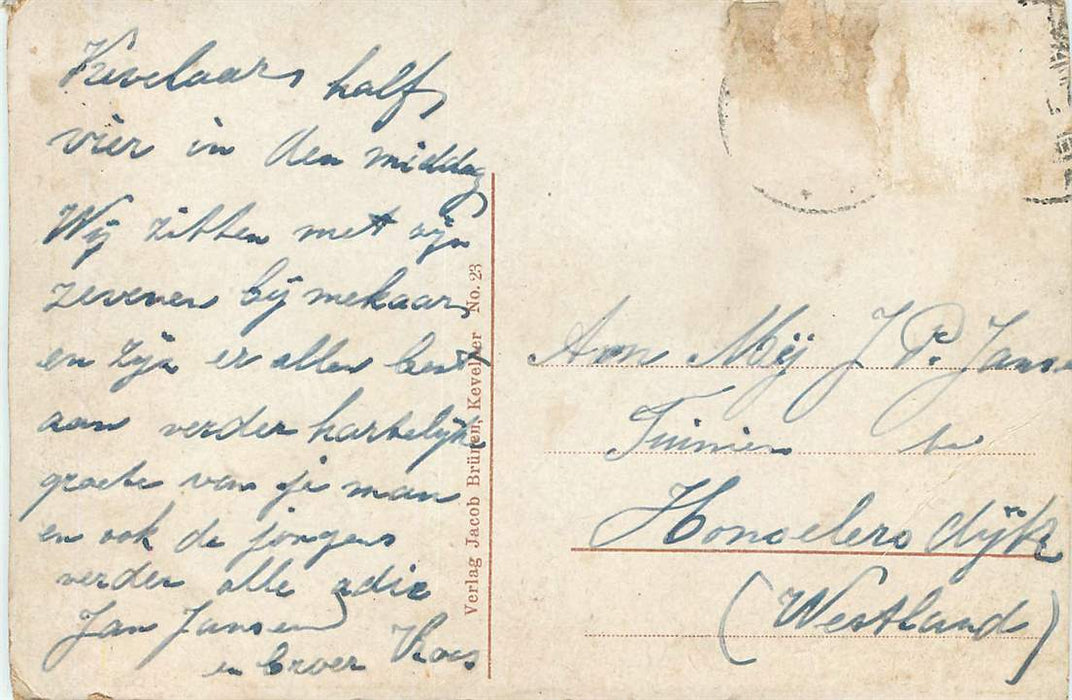 Kevelaar half
vier in den middag
Wij zitten met zijn
zevenen bij mekaar
en zijn er allen best
aan verder hartelijk
groete van je man
en ook de jongens
verder alle adie
Jan Jansen
en broer Koos
Verlag Jacob Brünen, Kevelaer No. 23
Aan Mej J P. Janse
Tuinier te
Honselersdijk
(Westland)